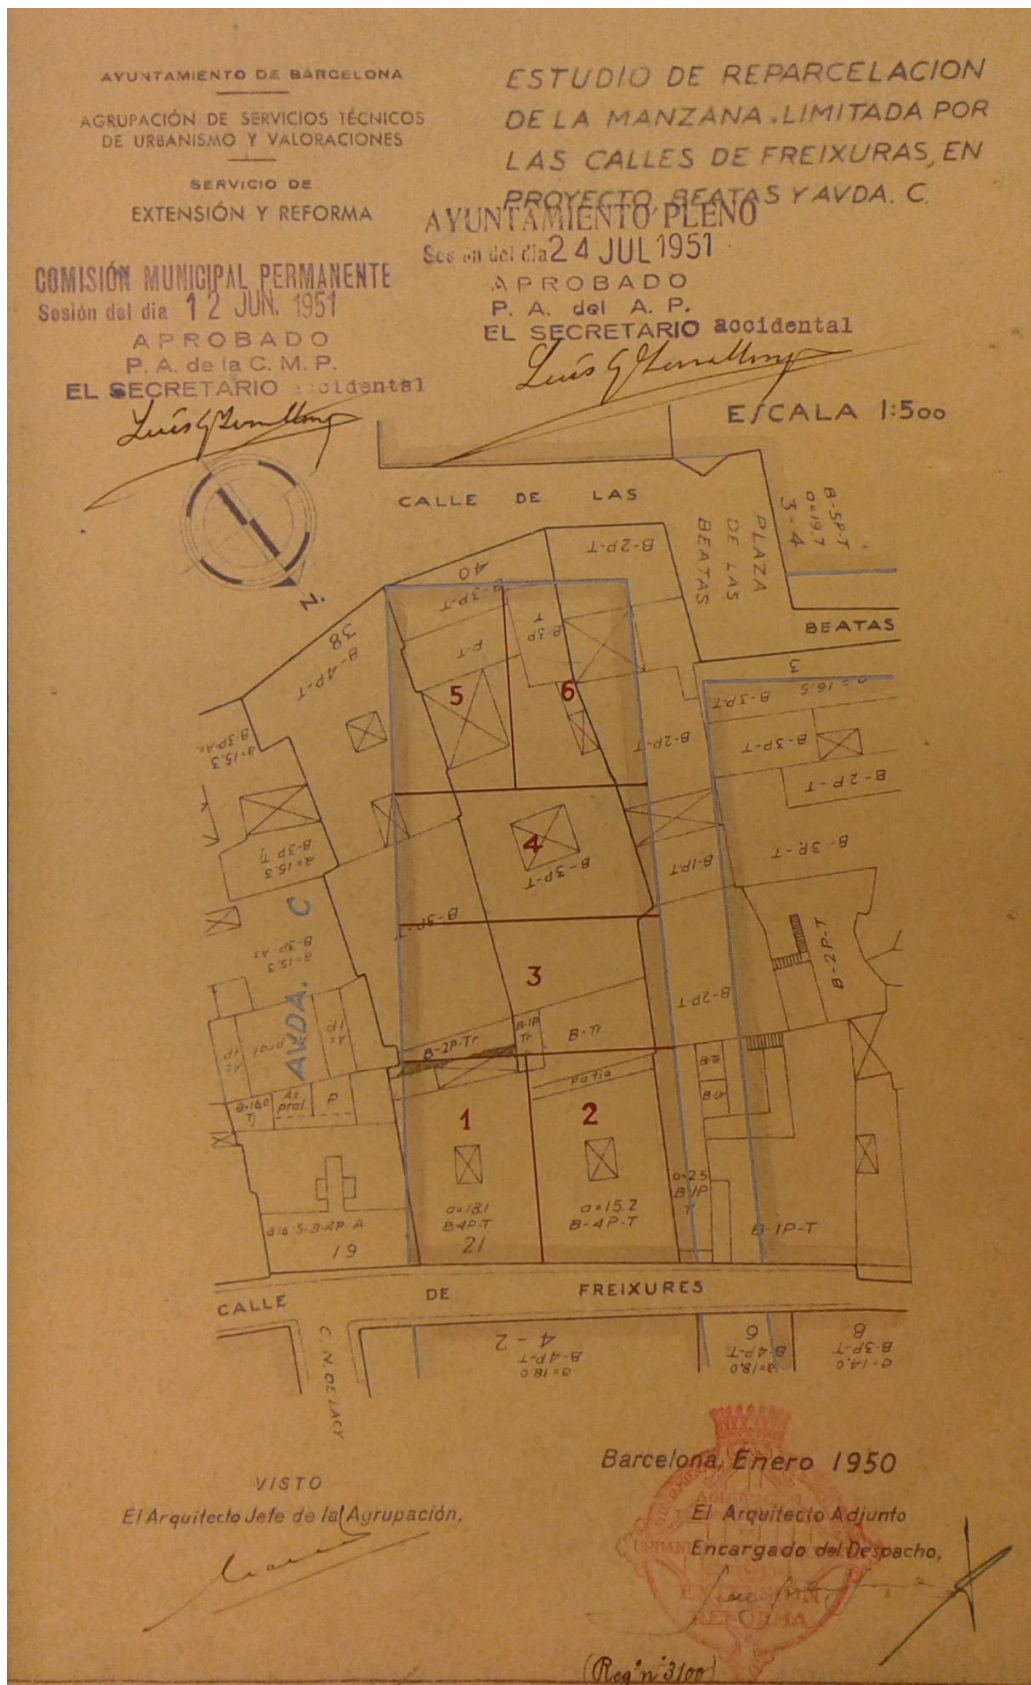 AYUNTAMIENTO DE BARCELONA
AGRUPACIÓN DE SERVICIOS TÉCNICOS
DE URBANISMO Y VALORACIONES
SERVICIO DE
EXTENSIÓN Y REFORMA
ESTUDIO DE REPARCELACION
DE LA MANZANA.LIMITADA POR
LAS CALLES DE FREIXURAS, EN
PROYECTO, BEATAS Y AVDA. C.
AYUNTAMIENTO PLENO
Sesión del día 24 JUL 1951
APROBADO
P. A. del A. P.
EL SECRETARIO accidental
COMISIÓN MUNICIPAL PERMANENTE
Sesión del día 12 JUN. 1951
APROBADO
P. A. de la C. M. P.
EL SECRETARIO accidental
ESCALA 1:500
CALLE DE LAS
BEATAS
PLAZA
DE LAS
BEATAS
B-5P-T
a=19.7
3-4
BEATAS
3
B-2P-T
40
B-3P-T
38
B-4P-T
P-T
B-3P
T
5
6
a=16.5
B-3P-T
B-3P-T
B-2P-T
B-2P-T
B-3P-T
a=15.3
B-3P-Az
a=15.3
B-3P Tj
4
B-3P-T
B-1P-T
B-3P-T
B-2P-T
AVDA. C
a=15.3
B-3P-Az
3
B-2P-T
B-2P-Tr
B-1P
Tr
B-Tr
patio
Az
pral
P
1
2
a=18.1
B-4P-T
21
a=15.2
B-4P-T
a=2.5
B-1P
T
B-1P-T
19
CALLE DE FREIXURES
C. N. DE LACY
4-2
B-4P-T
a=18.0
6
B-4P-T
a=18.0
8
B-3P-T
a=14.0
Barcelona, Enero 1950
VISTO
El Arquitecto Jefe de la Agrupación,
El Arquitecto Adjunto
Encargado del Despacho,
EXTENSIÓN
REFORMA
(Regº nº 3100)